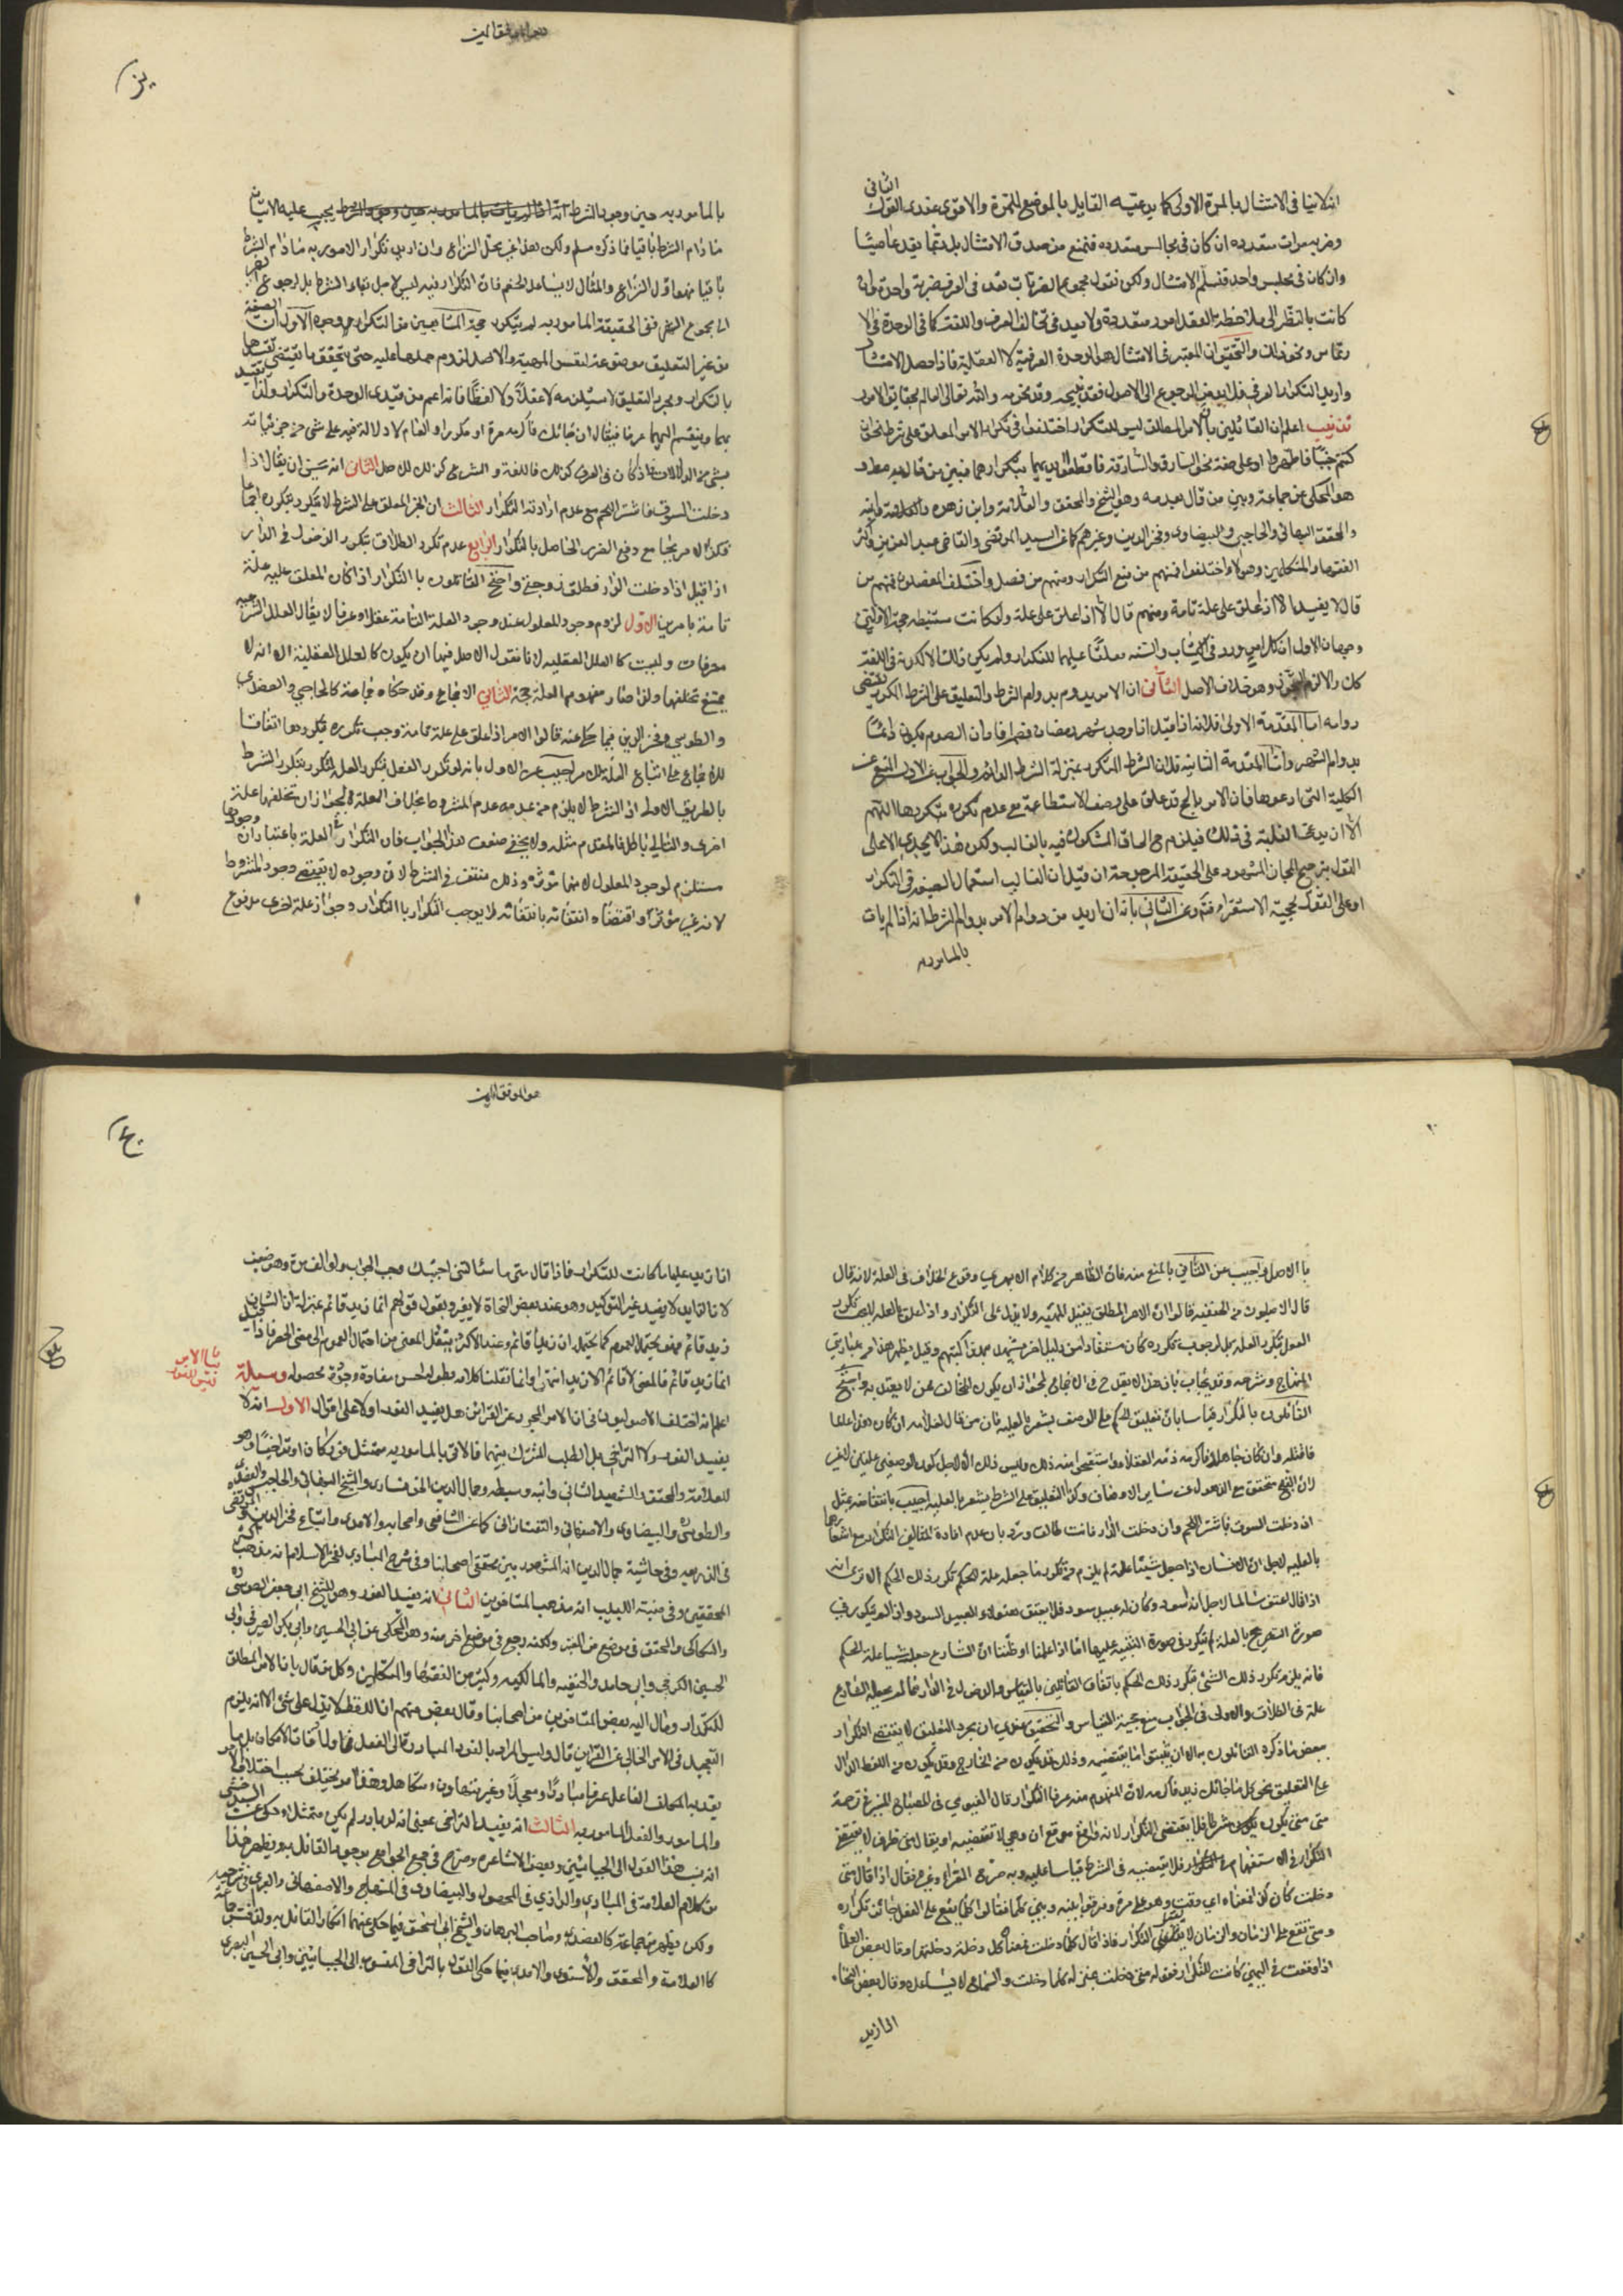 اثلاثيا في الامتثال بالمرة الاولى كما يدعيه القايل بالموضع للمرة والاقوى عندى القول الثاني
وضربه مرات متعدده ان كان في مجالس متعدده فنمنع من صدق الامتثال بل ربما يعد عاصيا
وان كان في مجلس واحد فنسلم الامتثال ولكن نقول مجموع الضربات تعد في العرف ضربة واحدة وان
كانت بالنظر الى ملاحظة العقل امور متعددة ولا بعد في تخالف العرف واللغة كما في الوحدة في الا
رتماس ونحو ذلك والتحقيق ان المعتبر في الامتثال هو الوحدة العرفية لا العقلية فاذا حصل الامتثال
واريد التكرار العرفي فلا بد من الرجوع الى الاصول فقد يبيحه وقد يحرمه والله تعالى العالم بحقايق الامور
تذنيب اعلم ان القائلين بان الامر المطلق ليس للتكرار اختلفوا في تكرار الامر المعلق على شرط نحو ان
كنتم جنبا فاطهروا او على صفة نحو السارق والسارقة فاقطعوا ايديهما بتكرارهما فبين من قال به مطلقا و
هو المحكى عن جماعة وبين من قال بعدمه وهو الشيخ والمحقق والعلامة وابن زهره
والمحقق البهائي والحاجبي والبيضاوى وفخر الدين وغيرهم كما عن السيد المرتضى والقاضي عبد العزيز واكثر
الفقهاء والمتكلمين وهؤلاء اختلفوا فمنهم من منع التكرار ومنهم من فصل واختلف المفصلون فمنهم من
قال لا يفيد الا اذا علق على علة تامة ومنهم قال الا اذا علق على علة ولو كانت مستنبطه حجة الاولين
وجهان الاول ان كل امر ورد في الكتاب والسنه معلقا عليهما للتكرار ولو لم يكن ذلك الا لكونه في اللغة
كان والا لزم التجوز وهو خلاف الاصل الثاني ان الامر يدوم بدوام الشرط والتعليق على الشرط المكرر يقتضى
دوامه اما المقدمة الاولى فلانه اذا قيل اذا وجد شهر رمضان فصم افاد ان الصوم يكون دائما
بدوام الشهر واما المقدمة الثانية فلان الشرط المتكرر بمنزلة الشرط الدائم والجواب عن الاول المنع عن
الكلية التي ادعوها فان الامر بالحج قد علق على وصف الاستطاعة مع عدم تكرره بتكررها اللهم
الا ان يدعى الغلبة في ذلك فيلزم ح الحاق المشكوك فيه بالغالب ولكن هذا لا يجدى الا على
القول بترجيح المجاز المشهور على الحقيقة المرجوحة ان قيل ان الغالب استعمال الصيغه في التكرار
او على القول بحجية الاستقراء فتم وعن الثاني بانه ان اريد من دوام الامر بدوام الشرط انه اذا لم يات
بالمامور به
بالمامور به حين وجود الشرط يجب عليه الاتيان
ما دام الشرط باقيا فما ذكره مسلم ولكن هذا غير محل النزاع وان اريد تكرار المامور به ما دام الشرط
باقيا فهو اول النزاع والمثال لا يساعد الخصم فان التكرار فيه ليس لاجل بقاء الشرط بل لرجوع
الى مجموع الشهر ففي الحقيقة المامور به لم يتكرر حجة المانعين من التكرار وجوه الاول ان الصيغة
من غير التعليق موضوعة لنفس المهية والاصل لزوم حملها عليه حتى يتحقق ما يقتضى تقييدها
بالتكرار ومجرد التعليق لا يستلزمه لا عقلا ولا لفظا فانه اعم من قيدى الوحدة والتكرار ولذا يقيد
بهما وينقسم اليهما عرفا فيقال ان جائك فاكرمه مرة او مكررا والعام لا دلالة فيه على شى من جزئياته
بشى من الدلالات فاذا كان في العرف كذلك فاللغة والشرع كذلك للاصل الثاني انه يحسن ان يقال اذا
دخلت السوق فاشتر اللحم مع عدم ارادة التكرار الثالث ان الخبر المعلق على الشرط لا يتكرر بتكرره اجماعا
فكذا الامر بجامع دفع الضرر الحاصل بالتكرار الرابع عدم تكرر الطلاق بتكرر الدخول في الدار
اذا قيل اذا دخلت الدار فطلق زوجتي واحتج القائلون بالتكرار اذا كان المعلق عليه علة
تامة بامرين الاول لزوم وجود المعلول عند وجود العلة التامة عقلا وعرفا لا يقال العلل الشرعية
معرفات وليست كالعلل العقليه لانا نقول الاصل فيها ان يكون كالعلل العقلية الا انه لا
يمتنع تخلفها ولذا صار مفهوم العلة حجة الثاني الاجماع وقد حكاه جماعة كالحاجبي والعضدى
والطوسي وفخر الدين فيما حكى عنه قالوا الامر اذا علق على علة تامة وجب تكرره بتكررها اتفاقا
للاجماع على اتباع العلة واجيب عن الاول بانه لو تكرر الفعل بتكرر العلة لتكرر بتكرر الشرط
بالطريق الاولى اذ الشرط يلزم من عدمه عدم المشروط بخلاف العلة لجواز ان تخلفها علة
اخرى والتالي باطل فالمقدم مثله ولا يخفى ضعف هذا الجواب فان التكرار في العلة باعتبار ان وجودها
مستلزم لوجود المعلول لانها مؤثرة وذلك منتف في الشرط لان وجوده لا يقتضى وجود المشروط
لانه غير مؤثر واقتضاء انتفائه بانتفائه لا يوجب التكرار بالتكرار وجواز علة اخرى مدفوع
بالاصل واجيب عن الثاني بالمنع منه فان الظاهر من كلام الابهرى وقوع الخلاف في العلة لانه قال
قال الاصوليون من الحنفيه قالوا ان الامر المطلق يفيد المهيه ولا يدل على التكرار واذا علق بالعلة لم يجب تكرر
الفعل بتكرر العلة بل لو وجب تكرره كان مستفادا من دليل اخر
المنهاج وشرحه وقد يجاب بان هذا لا يقدح في الاجماع لجواز ان يكون المخالف ممن لا يعتد به واحتج
القائلون بالتكرار قياسا بان تعليق الحكم على الوصف يشعر بالعلية فان من قال لعبده ان كان هذا عالما
فاقتله وان كان جاهلا فاكرمه ذمه العقلاء واستقبح منه ذلك وليس ذلك الا لاجل كون الوصفين علتين لا غير
لان القبح متحقق مع الذهول عن سائر الاوصاف وكذا التعليق على الشرط يشعر بالعلية اجيب بانتفاضه بمثل
ان دخلت السوق فاشتر اللحم وان دخلت الدار فانت طالق ورد بان عدم افادة المثالين التكرار مع اشعارهما
بالعلية لاجل ان الانسان اذا جعل شيئا علة لم يلزم من تكرر ما جعله علة للحكم تكرر ذلك الحكم الا ترى انه
اذا قال اعتق سالما لاجل انه اسود وكان له عبيد سود فلا يعتق هؤلاء العبيد السود واذا لم يتكرر في
صورة التصريح بالعلة لم يتكرر في صورة التنبيه عليها اما اذا علمنا او ظننا ان الشارع جعل شيئا علة لحكم
فانه يلزم تكرر ذلك الشئ تكرر ذلك الحكم باتفاق القائلين بالقياس والدخول في الدار مما لم يجعله الشارع
علة في الطلاق والاولى في الجواب منع حجية القياس والتحقيق عندى ان مجرد التعليق لا يقتضى التكرار
بمحض ما ذكره القائلون به الا ان يثبت ما يقتضيه وذلك قد يكون من الخارج وقد يكون من اللفظ الدال
على التعليق نحو كل ما جائك زيد فاكرمه لان المفهوم منه عرفا التكرار قال الفيومي في المصباح المنير في ترجمة
متى متى يكون شرطا فلا يقتضى التكرار لانه واقع موقع ان وهي لا تقتضيه او يقال متى ظرف لا يقتضى
التكرار في الاستفهام فلا يقتضيه في الشرط قياسا عليه وبه صرح الفراء وغيره فقال اذا قال متى
دخلت كان كذا فمعناه اي وقت وهو على مرة وفرقوا بينه وبين كلما فقالوا كلما يقع على الفعل جاز تكراره
ومتى تقع على الزمان والزمان لا يقبل التكرار فاذا قال كلما دخلت فمعناه كل دخلة دخلتها وقال بعض العلماء
اذا وقعت في اليمين كانت للتكرار فقوله متى دخلت بمنزلة كلما دخلت والسماع لا يساعده وقال بعض النحاة
اذا زيد
اذا زيد عليها ما كانت للتكرار فاذا قال متى ما سئالتني اجبتك وجب الجواب ولو الف مرة وهو ضعيف
لان الزايد لا يفيد غير التوكيد وهو عند بعض النحاة لا يغير ويقول قولهم انما زيد قائم بمنزلة ان الشان
زيد قائم فهو يحتمل العموم كما يحتمله ان زيدا قائم وعند الاكثر ينتقل المعنى من احتمال العموم الى معنى الحصر فاذا
انما زيد قائم فالمعنى لا قائم الا زيد انتهى وانما نقلنا كلامه بطوله لحسن مفاده وجودة محصوله وسيله
اعلم انه اختلف الاصوليون في ان الامر المجرد عن القرائن هل يفيد الفور اولا على اقوال الاول انه لا
يفيد الفور ولا التراخي بل الطلب المشترك بينهما فالاتي بالمامور به ممتثل فورا كان او تراخيا وهو
للعلامة والمحقق والشهيد الثاني وابنه وسبطه وجمال الدين الخونسارى والشيخ البهائي والحاجبي والعضدى
والطوسي والبيضاوى والاصفهاني والتفتازاني كما عن الشافعي واصحابه والامدى واتباع فخر الدين والمرتضى
في الذريعه وفي حاشية جمال الدين انه المشهور بين محققى اصحابنا وفي شرح المبادى لفخر الاسلام انه مذهب اكثر
المحققين وفي منية اللبيب انه مذهب المتاخرين الثاني انه يفيد الفور وهو للشيخ ابي جعفر الطوسى
والسكاكى والمحقق في موضع من المعتبر ولكنه رجع في موضع اخر منه وهو المحكى عن ابي الحسين وابي بكر الصيرفي وابي
الحسين الكرخي وابي حامد والحنفيه والمالكيه وكثير من الفقهاء والمتكلمين وكل من قال بان الامر المطلق
للتكرار ومال اليه بعض المتاخرين من اصحابنا وقال بعض منهم ان اللفظ لا يدل على شئ الا انه يلزم
التعجيل في الامر الخالي عن القراين قال وليس المراد بالفور المبادرة الى الفعل في اول اوقات الامكان بل ما
يعد به المكلف الفاعل عرفا مبادرا ومعجلا وغير متهاون ومتكاهل وهذا امر يختلف بحسب اختلاف الامر
والمامور والفعل المامور به الثالث انه يفيد التراخى بمعنى انه لو بادر لم يكن ممتثلا وحكى عن السرخسى
انه نسب هذا القول الى الجبائيين وبعض الاشاعره وصرح في جمع الجوامع بوجود القائل به ويظهر هذا
من كلام العلامة في المبادى والرازي في المحصول والبيضاوى في المنهاج والاصفهاني والعبرى في شرحيه
ولكن يظهر من جماعة كالعضدى وصاحب البرهان والشيخ ابي اسحق فيما حكى عنهما انكار القائل به ولذا فسر جماعة
كالعلامة والمحقق والاسنوى والامدى فيما حكى القول بالتراخى المنسوب الى الجبائيين وابي الحسين البصرى